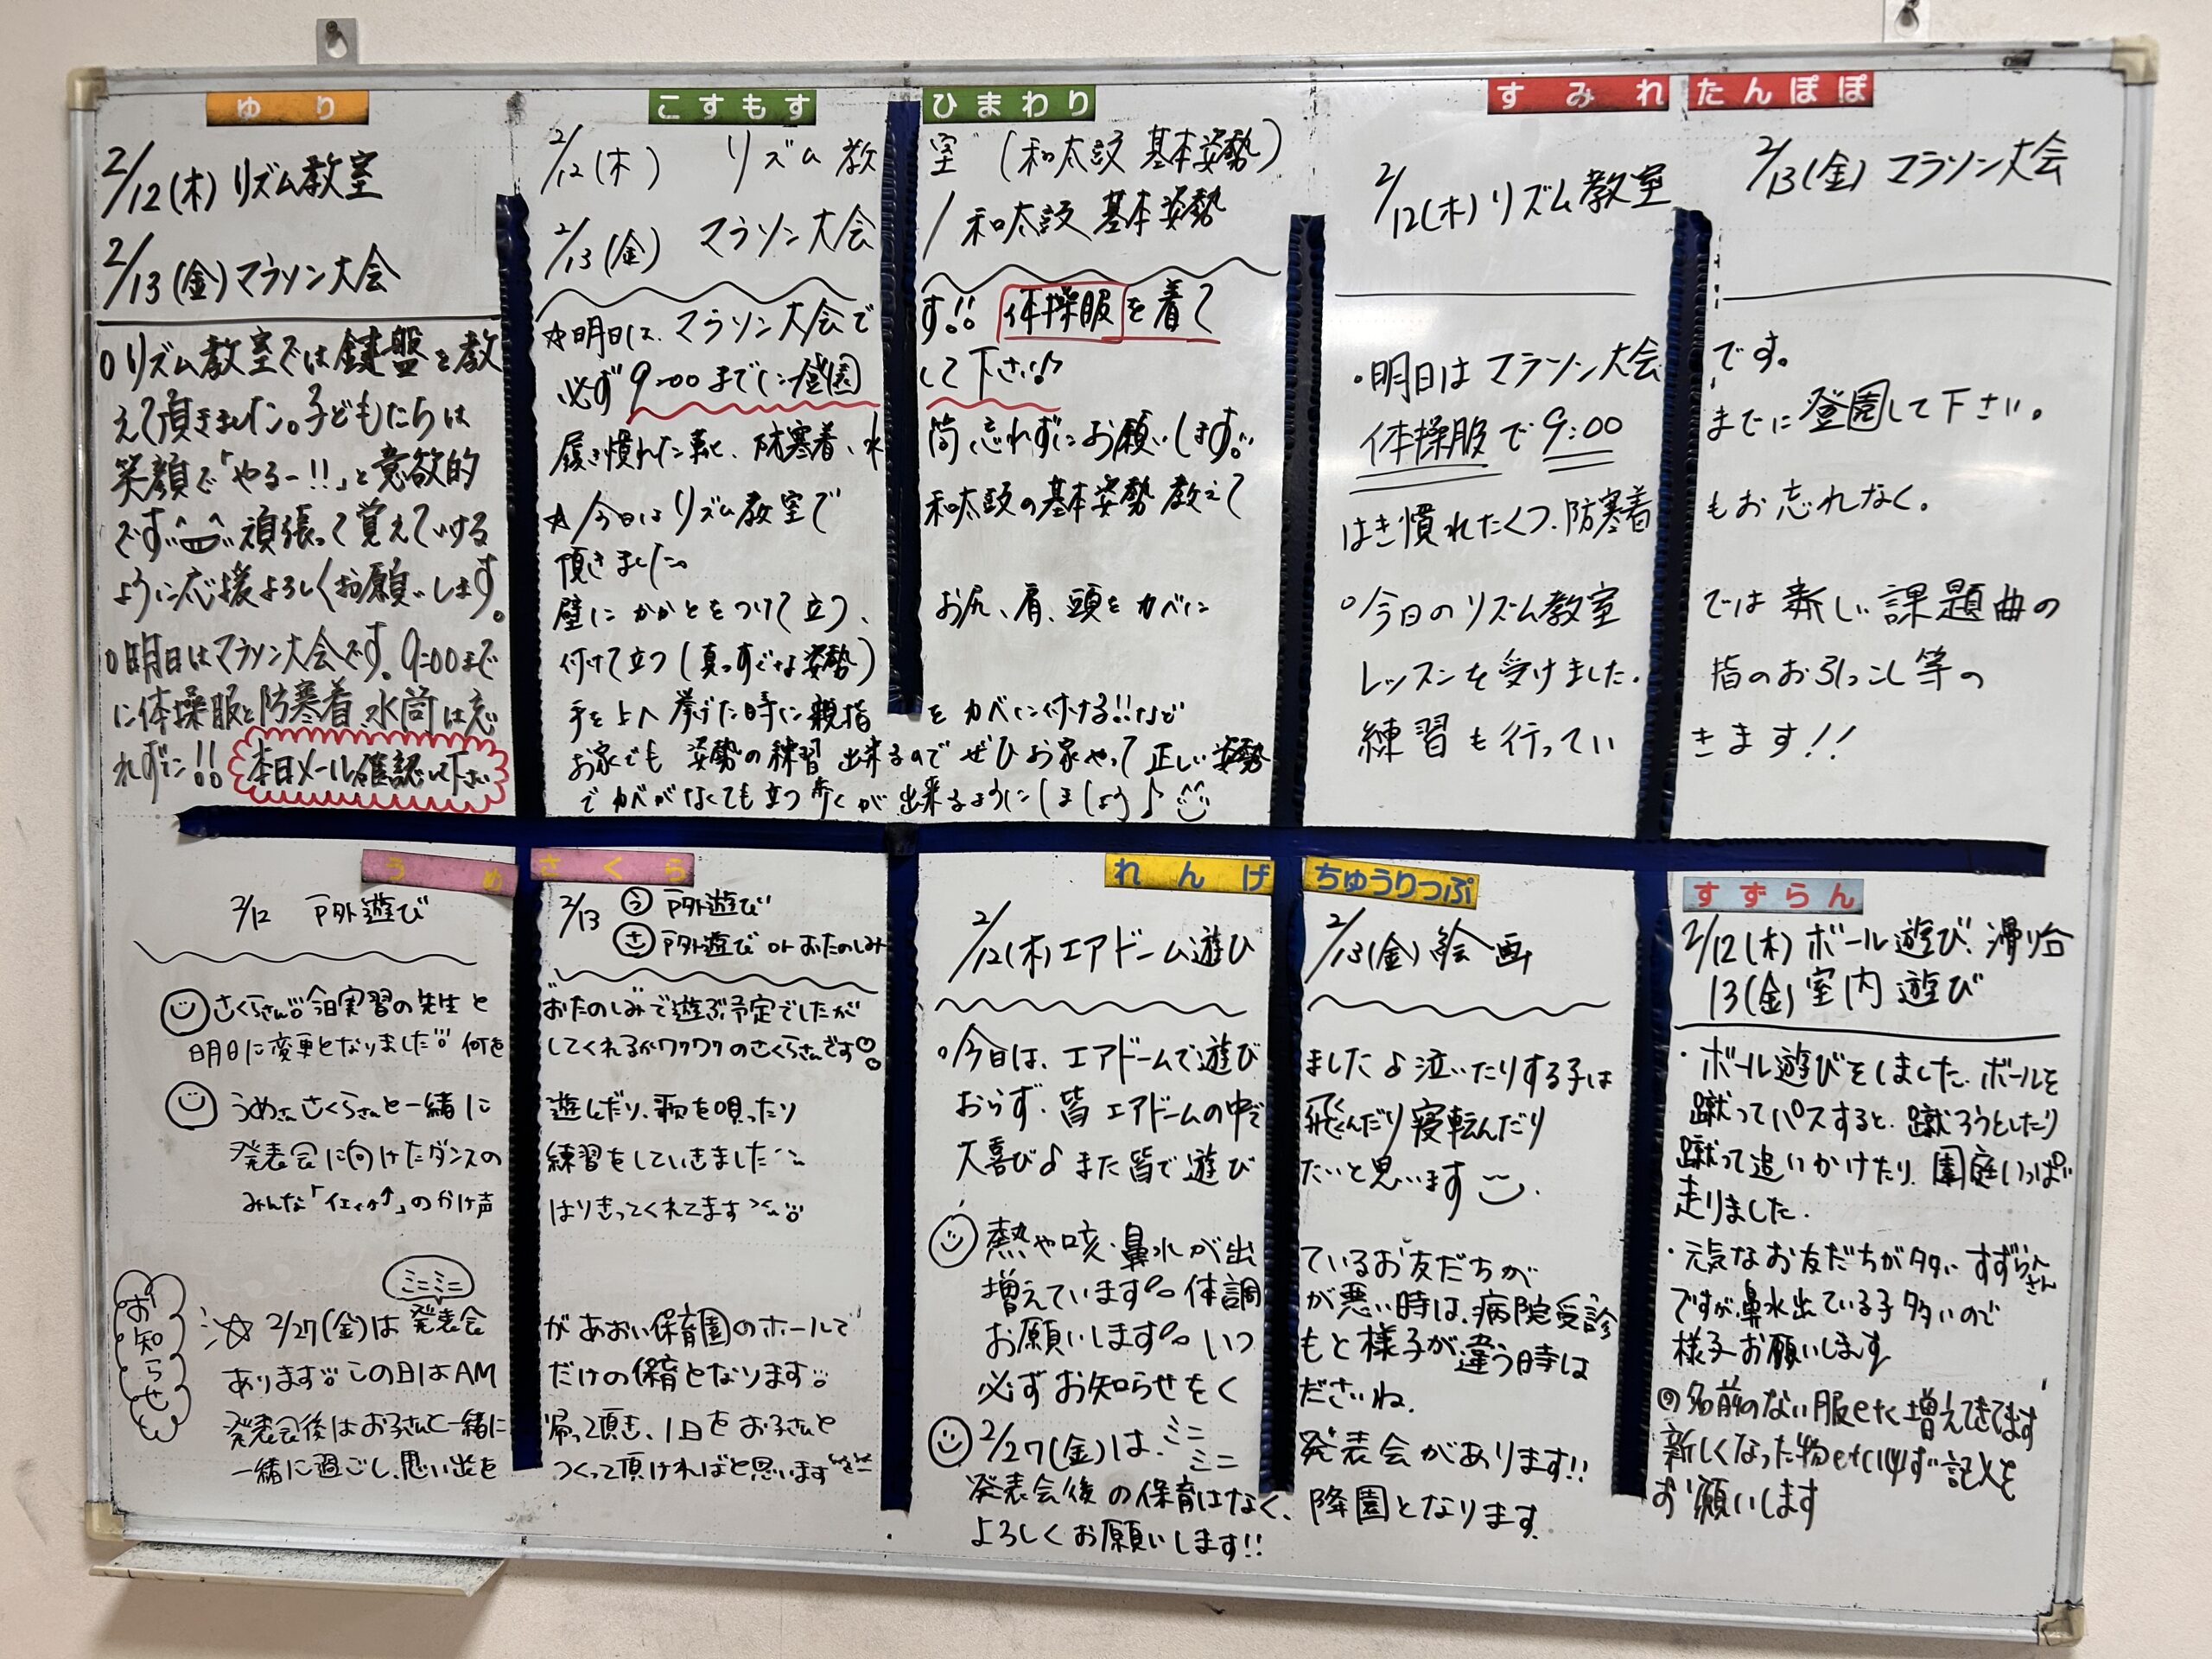 ゆり
2/12(木) リズム教室
2/13(金) マラソン大会
○リズム教室では鍵盤を教
えて頂きました。子どもたちは
笑顔で「やるー!!」と意欲的
です 頑張って覚えていける
ように応援よろしくお願いします。
○明日はマラソン大会です。9:00まで
に体操服と防寒着、水筒は忘
れずに!! 本日メール確認して下さい
こすもす ひまわり
2/12(木) リズム教室 (和太鼓 基本姿勢)
2/13(金) マラソン大会 / 和太鼓 基本姿勢
☆明日は、マラソン大会です!! 体操服を着て
必ず9:00までに登園して下さい♪
履き慣れた靴、防寒着、水筒忘れずにお願いします。
☆今日はリズム教室で和太鼓の基本姿勢教えて
頂きました。
壁にかかとをつけて立つ、お尻、肩、頭をカベに
付けて立つ(真っすぐな姿勢)
手を上へ挙げた時に親指をカベに付ける!!など
お家でも 姿勢の練習 出来るので ぜひお家やって 正しい姿勢
で カベがなくても立つ 歩くが 出来るようにしましょう♪
すみれ たんぽぽ
2/12(木) リズム教室 2/13(金) マラソン大会
・明日はマラソン大会です。
体操服で9:00までに登園して下さい。
はき慣れたくつ、防寒着もお忘れなく。
○今日のリズム教室では新しい課題曲の
レッスンを受けました。指のお引っこし等の
練習も行っていきます!!
うめ さくら
2/12 戸外遊び 2/13 ㋒戸外遊び
㋚戸外遊び or おたのしみ
さくらさん 今日実習の先生とおたのしみで遊ぶ予定でしたが
明日に変更となりました 何をしてくれるかワクワクのさくらさんです
うめさん さくらさんと一緒に遊んだり、歌を唄ったり
発表会に向けたダンスの練習をしていきました
みんな「イェィィ↑」のかけ声はりきってくれてます
お知らせ
ミニミニ
☆ 2/27(金)は 発表会があおい保育園のホールで
あります この日はAMだけの保育となります
発表会後はお子さんと一緒に帰って頂き、1日をお子さんと
一緒に過ごし、思い出をつくって頂ければと思います
れんげ ちゅうりっぷ
2/12(木) エアドーム遊び 2/13(金) 絵画
○今日は、エアドームで遊びました♪泣いたりする子は
おらず、皆エアドームの中で飛んだり寝転んだり
大喜び♪また皆で遊びたいと思います
熱や咳・鼻水が出ているお友だちが
増えています 体調が悪い時は、病院受診
お願いします いつもと様子が違う時は
必ずお知らせをくださいね。
2/27(金)は、ミニミニ発表会があります!!
発表会後の保育はなく、降園となります。
よろしくお願いします!!
すずらん
2/12(木) ボール遊び、滑り台
13(金) 室内遊び
・ボール遊びをしました。ボールを
蹴ってパスすると、蹴ろうとしたり
蹴って追いかけたり、園庭いっぱい
走りました。
・元気なお友だちが多いすずらんさん
ですが、鼻水出ている子多いので
様子お願いします
名前のない服etc増えてきてます
新しくなった物etcは必ず記入を
お願いします